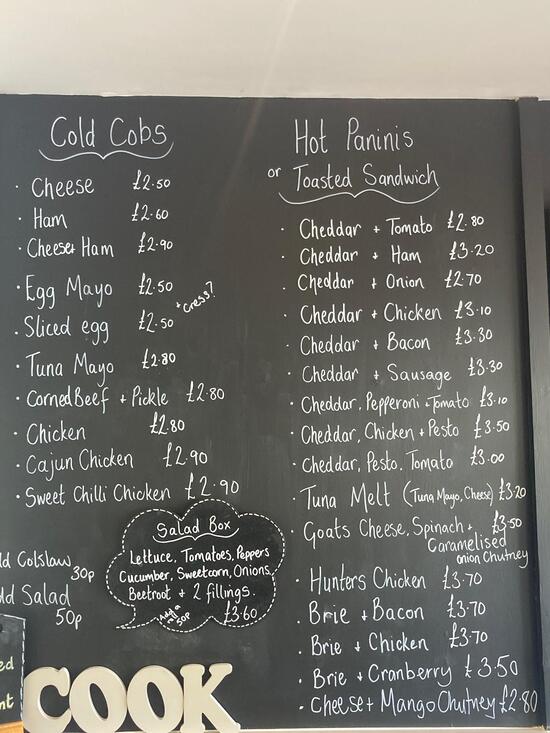 Cold Cobs
· Cheese £2.50
· Ham £2.60
· Cheese+ Ham £2.90
· Egg Mayo £2.50
+ cress?
· Sliced egg £2.50
· Tuna Mayo £2.80
· Corned Beef + Pickle £2.80
· Chicken £2.80
· Cajun Chicken £2.90
· Sweet Chilli Chicken £2.90
Colslaw
30p
Salad
50p
Salad Box
Lettuce, Tomatoes, Peppers
Cucumber, Sweetcorn, Onions,
Beetroot + 2 fillings.
£3.60
Add a
50p
COOK
Hot Paninis
or Toasted Sandwich
· Cheddar + Tomato £2.80
· Cheddar + Ham £3.20
· Cheddar + Onion £2.70
· Cheddar + Chicken £3.10
· Cheddar + Bacon £3.30
· Cheddar + Sausage £3.30
· Cheddar, Pepperoni + Tomato £3.10
· Cheddar, Chicken + Pesto £3.50
· Cheddar, Pesto, Tomato £3.00
· Tuna Melt (Tuna Mayo, Cheese) £3.20
· Goats Cheese, Spinach + £3.50
Caramelised
onion Chutney
· Hunters Chicken £3.70
· Brie + Bacon £3.70
· Brie + Chicken £3.70
· Brie + Cranberry £3.50
· Cheese + Mango Chutney £2.80